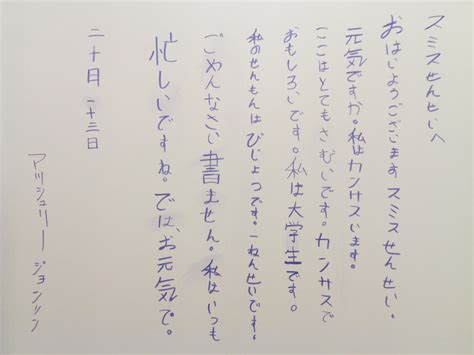 スミスせんせいへ
おはじようございます スミスせんせい。
元気ですか。私はカンサスいます。
ここはとてもさむいです。カンサスで
おもしろいです。私は大学生です。
私のせんもんはびじょつです。一ねんせいです。
ごめんなさい書ません。私はいつも
忙しいですね。では、お元気で。
二十日 十三日
アッシュリー ジョンソン